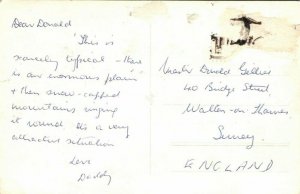 Dear Donald
This is
scarcely typical - there
is an enormous plain
& then snow-capped
mountains ringing
it round. It's a very
attractive situation
Love
Daddy
Master Donald Gellies
40 Bridge Street
Walton-on-Thames
Surrey
ENGLAND